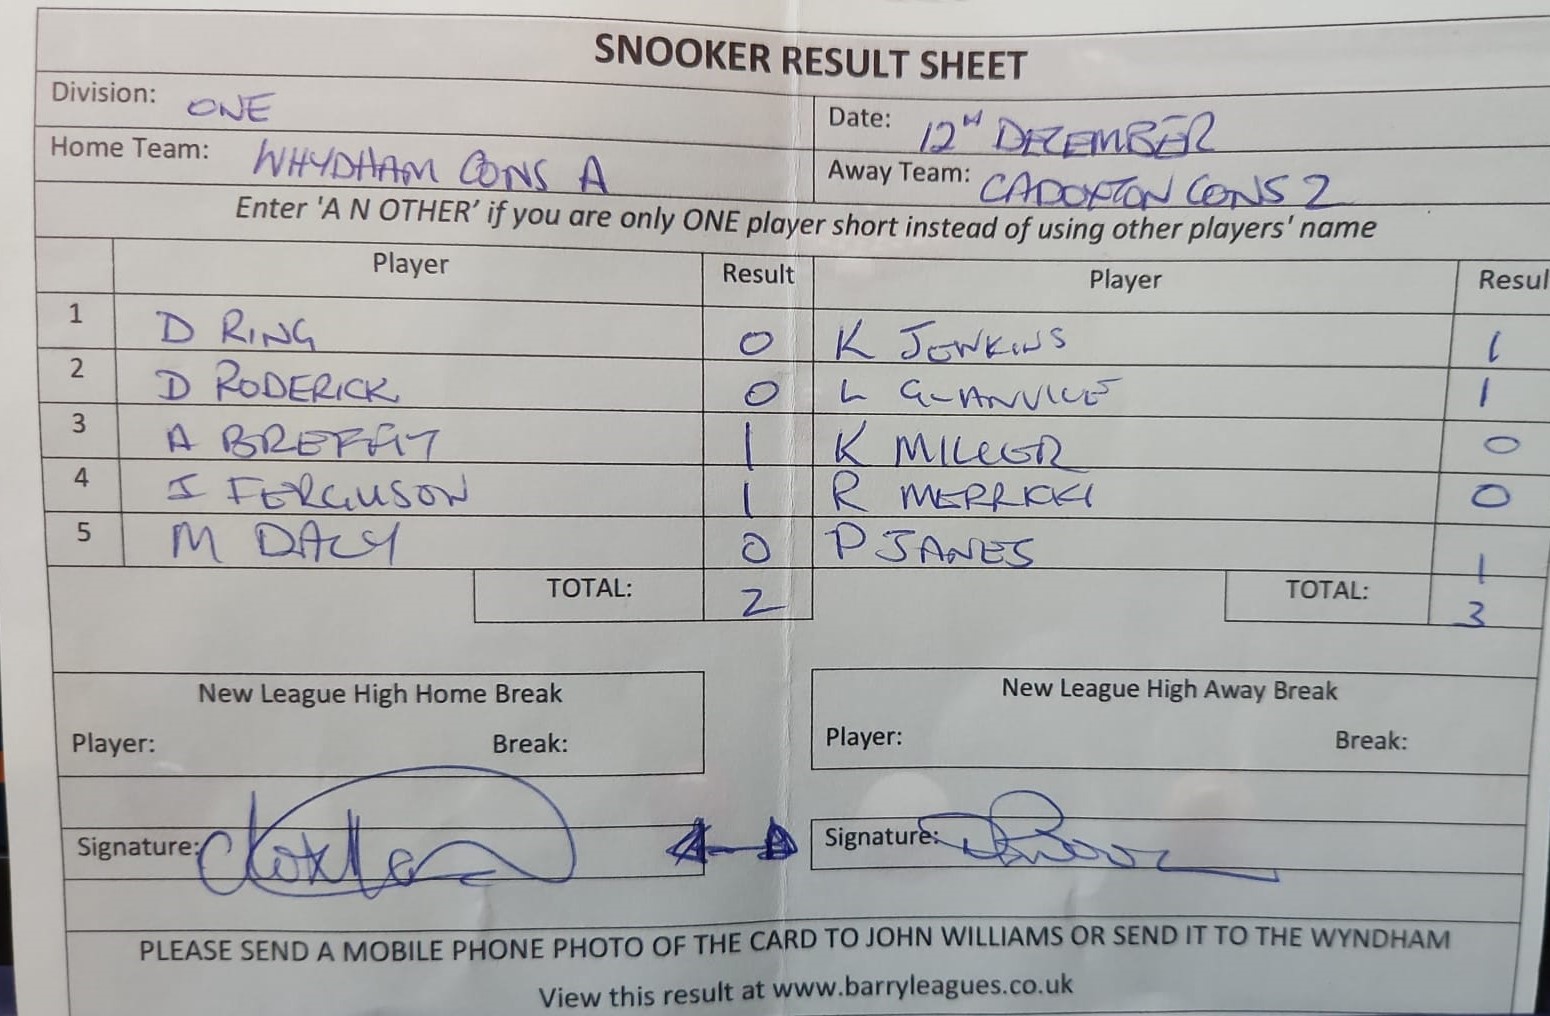 SNOOKER RESULT SHEET
Division: ONE
Date: 12TH DEZEMBER
Home Team: WHYDHAM CONS A
Away Team: CADOXTON CONS 2
Enter 'A N OTHER' if you are only ONE player short instead of using other players' name
Player Result Player Resul
1 D RING 0 K JENKINS 1
2 D RODERICK 0 L GLANVILLE 1
3 A BREFFIT 1 K MILLER 0
4 I FERGUSON 1 R MERRICK 0
5 M DALY 0 P JANES 1
TOTAL: 2 TOTAL: 3
New League High Home Break
Player: Break:
New League High Away Break
Player: Break:
Signature:
Signature:
PLEASE SEND A MOBILE PHONE PHOTO OF THE CARD TO JOHN WILLIAMS OR SEND IT TO THE WYNDHAM
View this result at www.barryleagues.co.uk